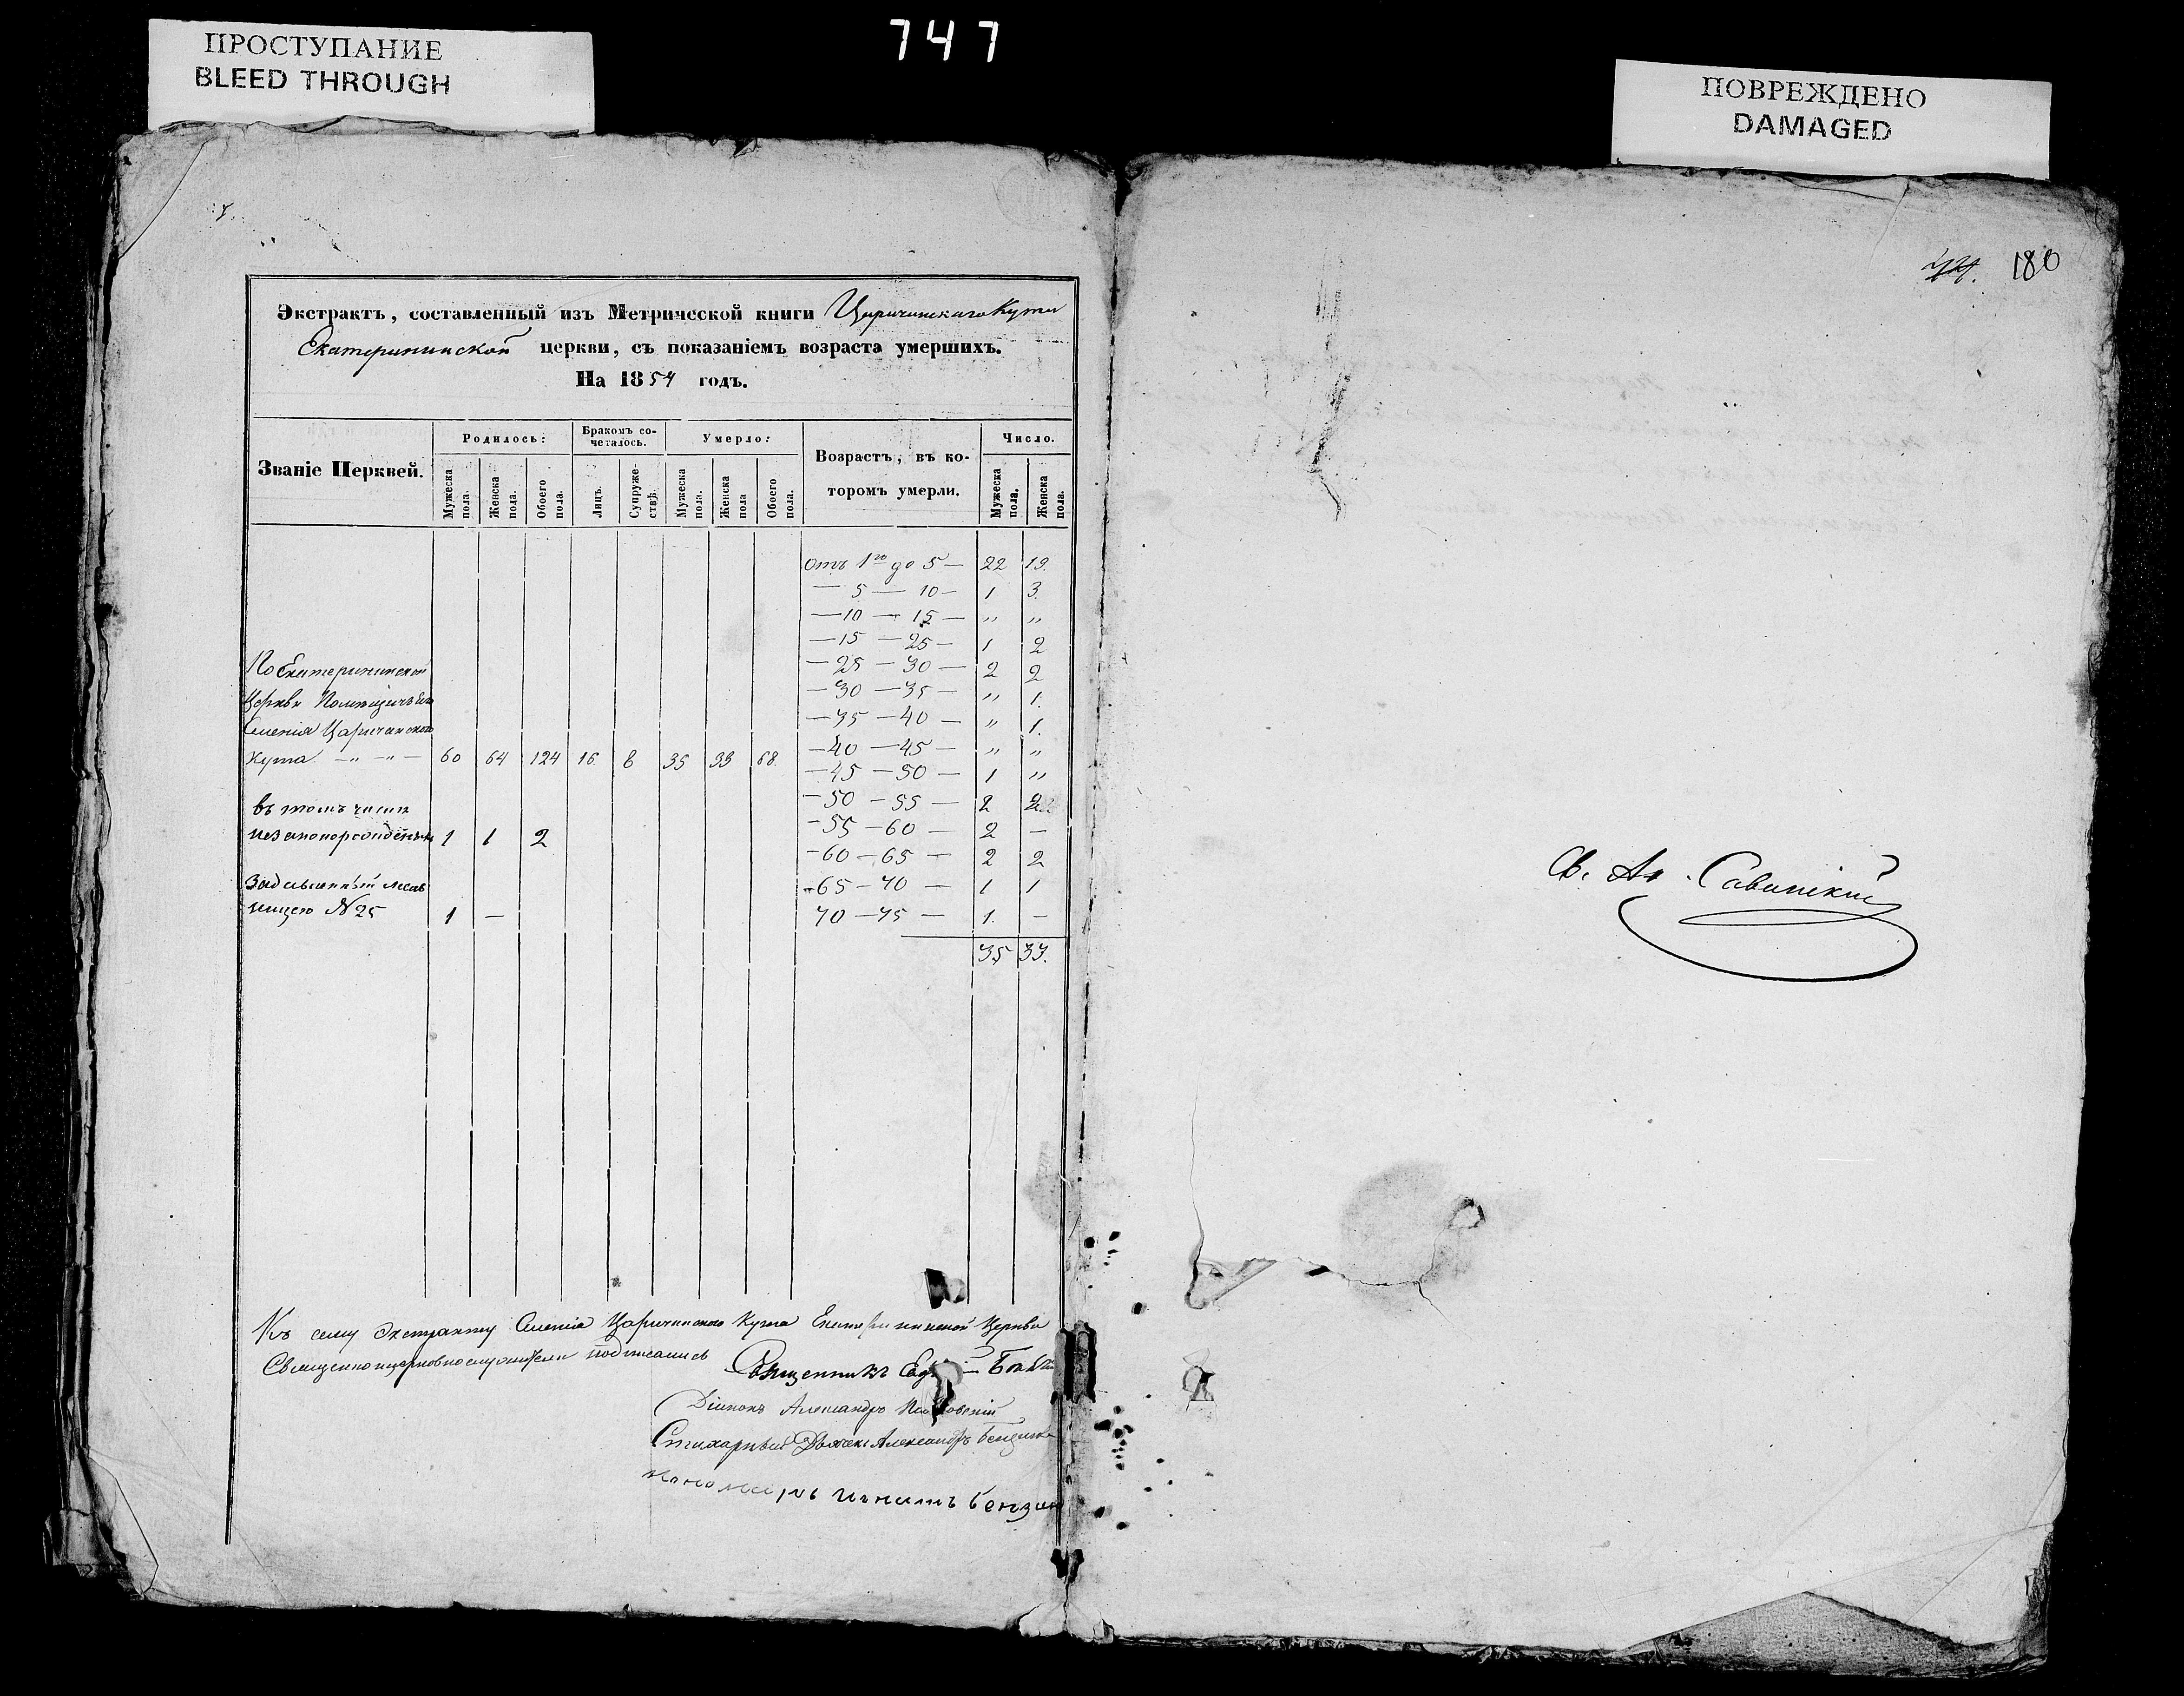 747
ПРОСТУПАНИЕ
BLEED THROUGH
ПОВРЕЖДЕНО
DAMAGED
180
Экстрактъ, составленный изъ Метрической книги Царичинскаго Кута
Екатерининской церкви, съ показаніемъ возраста умершихъ.
На 1854 годъ.
Званіе Церквей. Родилось: Бракомъ со-четалось. Умерло: Возрастъ, въ ко-торомъ умерли. Число.
Мужеска пола. Женска пола. Обоего пола. Лицъ. Супруже-ствъ. Мужеска пола. Женска пола Обоего пола. Мужеска пола. Женска пола.
Отъ 1го до 5 — 22 19.
— 5 — 10 — 1 3.
— 10 — 15 — „ „
— 15 — 25 — 1 2
— 25 — 30 — 2 2
— 30 — 35 — „ 1.
— 35 — 40 — „ 1.
— 40 — 45 — „ „
— 45 — 50 — 1 „
— 50 — 55 — 2 2
— 55 — 60 — 2 —
— 60 — 65 — 2 2
— 65 — 70 — 1 1
70 — 75 — 1. —
35 33.
По Екатерининской
Церкви
Селенія Царичанскаго
Кута — „ — „ — 60 64 124 16. 8 35 33 68.
въ томъ числѣ
незаконорожденныхъ 1 1 2
№ 25 1 —
Къ сему Экстракту Селенія Царичинскаго Кута Екатерининской Церкви
Священноицерковнослужители подписались
Священникъ
Діаконъ Александръ
Стихарный Дьячекъ Александръ
Пономарь
Св. Ал. Савинскій